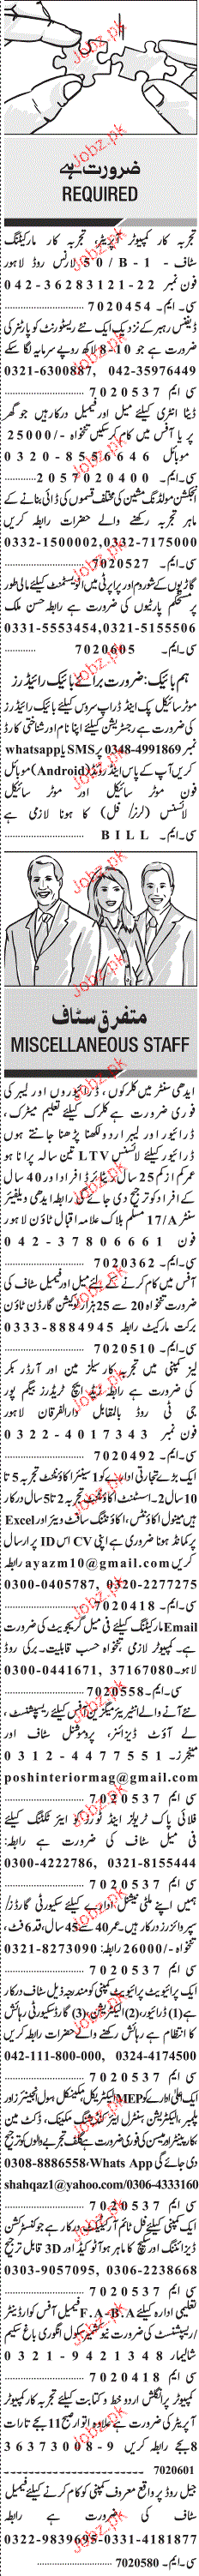 ضرورت ہے
REQUIRED
تجربہ کار کمپیوٹر آپریٹر، تجربہ کار مارکیٹنگ
سٹاف - 50/B-1 لارنس روڈ لاہور
فون نمبر 042-36283121-22
سی۔ایم۔ 7020454
ڈیفنس رہبر کے نزدیک ایک نئے ریسٹورنٹ کو پارٹنر کی
ضرورت ہے جو 10-8 لاکھ روپے سرمایہ لگا سکے
0321-6300887, 042-35976449
سی ایم 7020537
ڈیٹا انٹری کیلئے میل اور فیمیل درکار ہیں جو گھر
پر یا آفس میں کام کر سکیں تنخواہ -/25000
موبائل 0320-8556646
سی۔ایم۔ 2057020400
انجکشن مولڈنگ مشین کی مختلف قسموں کی ڈائی بنانے کے
ماہر تجربہ رکھنے والے حضرات رابطہ کریں
0332-1500002, 0332-7175000
سی۔ایم۔ 7020527
گاڑیوں کے شوروم اور پراپرٹی میں انویسٹمنٹ کیلئے مالی طور
پر مستحکم پارٹیوں کی ضرورت ہے رابطہ حسن ملک
0331-5553454, 0321-5155506
سی۔ایم۔ 7020605
ہم بائیک: ضرورت برائے بائیک رائیڈرز
موٹر سائیکل پک اینڈ ڈراپ سروس کیلئے بائیک رائیڈرز
کی ضرورت ہے رجسٹریشن کیلئے اپنا نام اور شناختی کارڈ
نمبر 0348-4991869 پر SMS یا whatsapp
کریں آپ کے پاس اینڈرائڈ (Android) موبائل
فون موٹر سائیکل اور موٹر سائیکل
لائسنس (لرنر/ فل) کا ہونا لازمی ہے
سی۔ایم۔ BILL
متفرق سٹاف
MISCELLANEOUS STAFF
ایدھی سنٹر میں کلرکوں، ڈرائیوروں اور لیبر کی
فوری ضرورت ہے کلرک کیلئے تعلیم میٹرک،
ڈرائیور اور لیبر اردو لکھنا پڑھنا جانتے ہوں
ڈرائیور کیلئے لائسنس LTV تین سالہ پرانا ہو
عمر کم از کم 25 سال ریٹائرڈ افراد اور 40 سال
کے افراد کو ترجیح دی جائے گی رابطہ ایدھی ویلفیئر
سنٹر 17/A مسلم بلاک علامہ اقبال ٹاؤن لاہور
فون 042-37806661
سی۔ایم۔ 7020362
آفس میں کام کرنے کے لئے میل اور فیمیل سٹاف کی
ضرورت تنخواہ 20 سے 25 ہزار لوکیشن گارڈن ٹاؤن
برکت مارکیٹ رابطہ 0333-8884945
سی۔ایم۔ 7020510
لیز کمپنی میں تجربہ کار سیلز مین اور آرڈر بکر
کی ضرورت ہے رابطہ ایچ ٹریڈرز بیگم پور
جی ٹی روڈ بالمقابل دارالفرقان لاہور
فون نمبر 0322-4017343
سی۔ایم۔ 7020492
ایک بڑے تجارتی ادارے کو 1 سینئر اکاؤنٹنٹ تجربہ 5 تا
10 سال 2۔ اسسٹنٹ اکاؤنٹنٹ تجربہ 2 تا 5 سال درکار
ہیں مینول اکاؤنٹس، اکاؤنٹنگ سافٹ ویئرز اور Excel
پر کمانڈ ہونا ضروری ہے اپنی CV اس ID پر ارسال
کریں ayazm10@gmail.com رابطہ
0300-0405787, 0320-2277275
سی۔ایم۔ 7020418
Email مارکیٹنگ کیلئے فی میل گریجویٹ کی ضرورت
ہے۔ کمپیوٹر لازمی تنخواہ حسب قابلیت۔ برکی روڈ
لاہور۔ 0300-0441671, 37167080
سی۔ایم۔ 7020558
نئے آنے والے انٹیریئر میگزین آفس کیلئے ریسپشنسٹ،
لے آؤٹ ڈیزائنر، پروموشنل سٹاف اور
منیجرز۔ 0312-4477551
poshinteriormag@gmail.com
سی ایم 7020537
فلائی پاک ٹریولز اینڈ ٹورز کو ایئر ٹکٹنگ کیلئے
فی میل سٹاف کی ضرورت ہے رابطہ:
0300-4222786, 0321-8155444
سی ایم 7020537
ہمیں اپنے ملٹی نیشنل ادارے کیلئے سکیورٹی گارڈز/
سپروائزر درکار ہیں عمر 40 سے 45 سال، قد 6 فٹ،
تنخواہ -/26000 رابطہ: 0321-8273090
سی ایم 7020537
ایک پرائیویٹ کمپنی کو مندرجہ ذیل سٹاف درکار
ہے (1) ڈرائیور (2) الیکٹریشن (3) گارڈ سکیورٹی رہائش
کا انتظام ہے رہائش رکھنے والے حضرات رابطہ کریں
042-111-800-000, 0324-4174500
سی ایم 7020537
ایک اعلیٰ ادارے کو MEP الیکٹریکل، مکینیکل، سول انجینئرز اور
پلمبر، الیکٹریشن، سنٹرل ایئر کنڈیشننگ مکینک، ڈکٹ مین
کارپینٹر اور میسن کی فوری ضرورت ہے گلف تجربے والوں کو ترجیح
دی جائے گی 0308-8886558 Whats App
shahqaz1@yahoo.com/0306-4333160
سی ایم 7020537
ایک کمپنی کیلئے فل ٹائم آرکیٹیکٹ درکار ہے جو کنسٹرکشن
ڈیزائننگ اور سکیچ کا ماہر ہو آٹو کیڈ اور 3D قابل ترجیح
0303-9057095, 0306-2238668
سی ایم 7020537
تعلیمی ادارہ کیلئے F.A, B.A فیمیل آفس کوارڈینیٹر
اریسپشنسٹ کی ضرورت سکول انگوری باغ سکیم
شالیمار 0321-9421348
سی ایم 7020418
کمپیوٹر پر انگلش اردو خط و کتابت کیلئے تجربہ کار کمپیوٹر
آپریٹر کی ضرورت ہے علاوہ اتوار صبح 11 بجے تا رات
8 بجے رابطہ کریں 36373008-9
7020601
جیل روڈ پر واقع معروف کمپنی کو کام کرنے کیلئے فیمیل
سٹاف کی ضرورت ہے رابطہ
0322-9839695-0331-4181877
سی۔ایم۔ 7020580